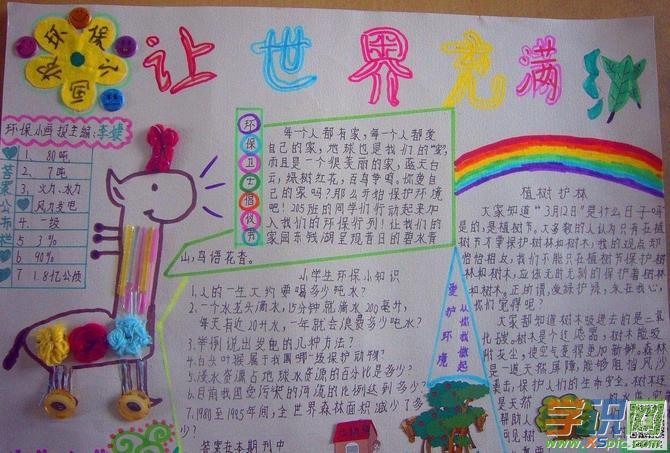 让世界充满
环保小画报主编:李健
答案公布栏
1、80吨
2、7吨
3、火力、水力
风力发电
4、一级
5、3%
6、90%
7、1.8亿公顷
环保卫士倡议书
每个人都有家,每个人都爱
自己的家,地球也是我们的“家”,
而且是一个很美丽的家,蓝天白
云,绿树红花,百鸟争鸣。你爱自
己的家吗?那么开始保护环境
吧!205班的同学们行动起来加
入我们的环保行列!让我们的
家园东钱湖呈现昔日的碧水青
山,鸟语花香。
小学生环保小知识
1、人的一生大约要喝多少吨水?
2、一个水龙头滴水,15分钟就滴水200毫升,
每天有近20升水,一年就会浪费多少吨水?
3、举例说出发电的几种方法?
4、白头叶猴属于我国哪一级保护动物?
5、淡水资源占地球水资源的百分比是多少?
6、目前我国受污染的河流的比例达到多少?
7、1980至1995年间,全世界森林面积减少了多
少?
答案在本期刊中
爱护环境
从你我做起
植树护林
大家知道“3月12日”是什么日子吗
是的,是植树节。大多数的人认为只有在植
树节才需保护树林和树木,我的观点却
恰恰相反,我们不能只在植树节保护树
林和树木,应该无时无刻的保护着树林
和树木。正所谓,爱绿护绿,来在我心,
我们觉得呢?
大家都知道树木吸进去的是二氧
化碳。树木是个过滤器,树木能吸
附灰尘,使空气变得更加新鲜。森林
是一道天然屏障,能够阻挡风沙
袭击,保护人们的生命安全。树木还
是天然
帮助人
可见树
学识网
www.XSpic.com